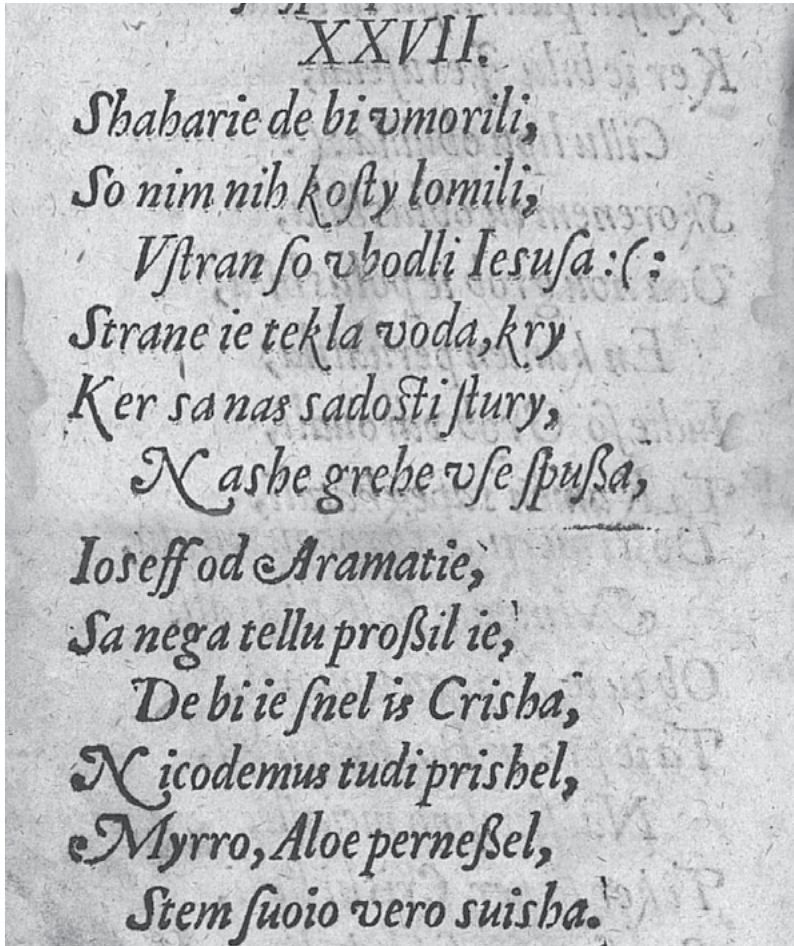 XXVII.
Shaharie de bi vmorili,
So nim nih koſty lomili,
Vſtran ſo vbodli Iesuſa :(:
Strane ie tekla voda, kry
Ker sa nas sadoſti ſtury,
Nashe grehe vſe ſpußa,
Ioseff od Aramatie,
Sa nega tellu proßil ie,
De bi ie ſnel is Crisha,
Nicodemus tudi prishel,
Myrro, Aloe perneßel,
Stem ſuoio vero suisha.